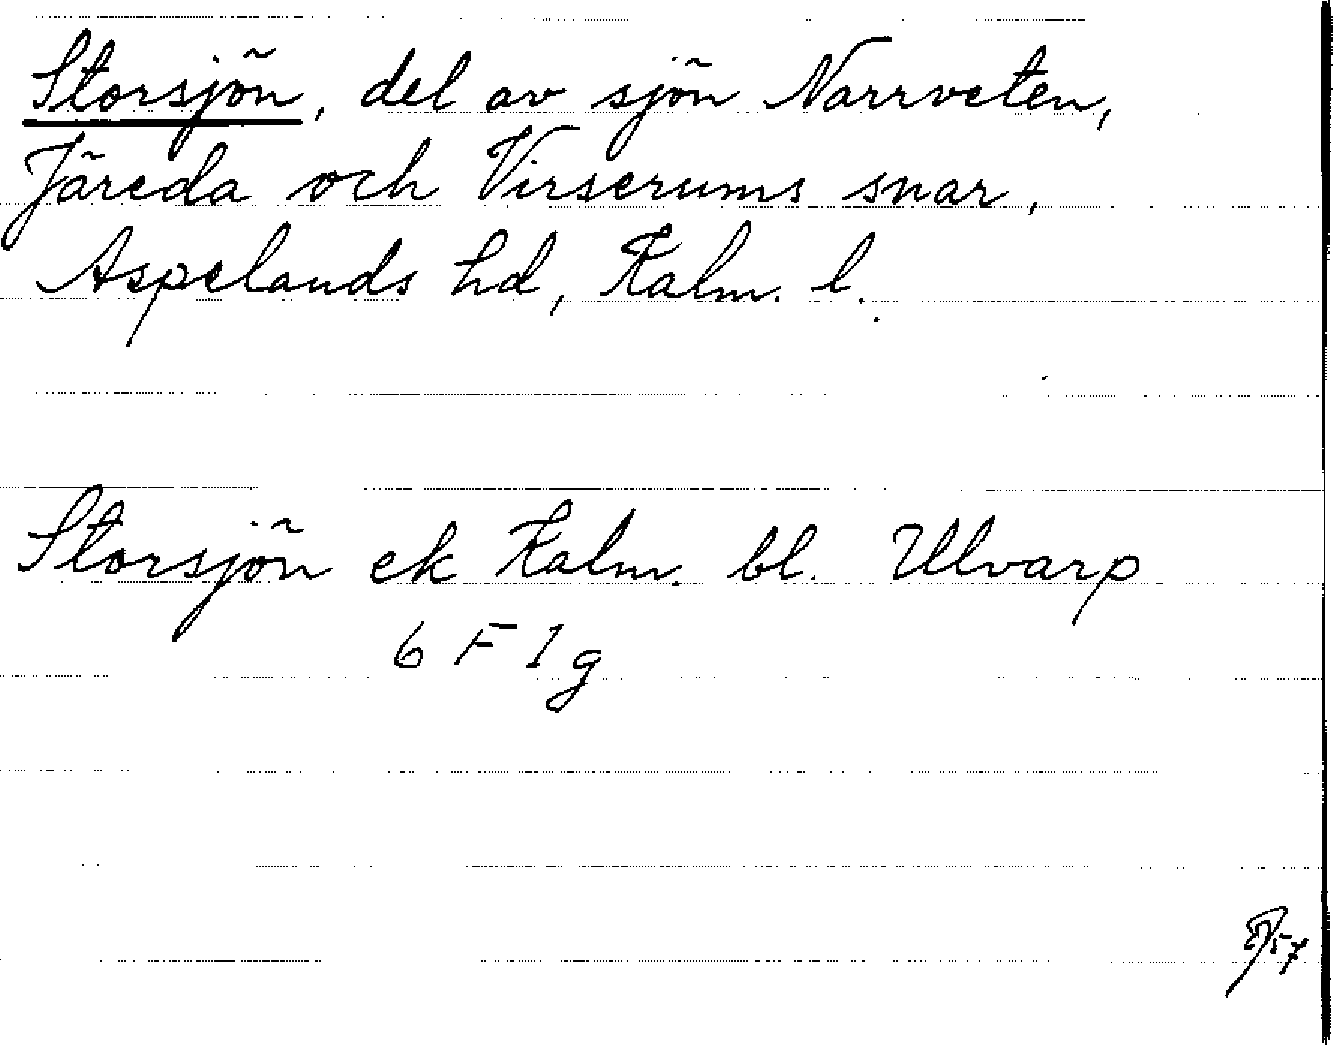 Storsjön, del av sjön Narrveten,
Järeda och Virserums snar,
Aspelands hd, Kalm. l.
Storsjön ek Kalm. bl. Ulvarp
6 F 1 g
57